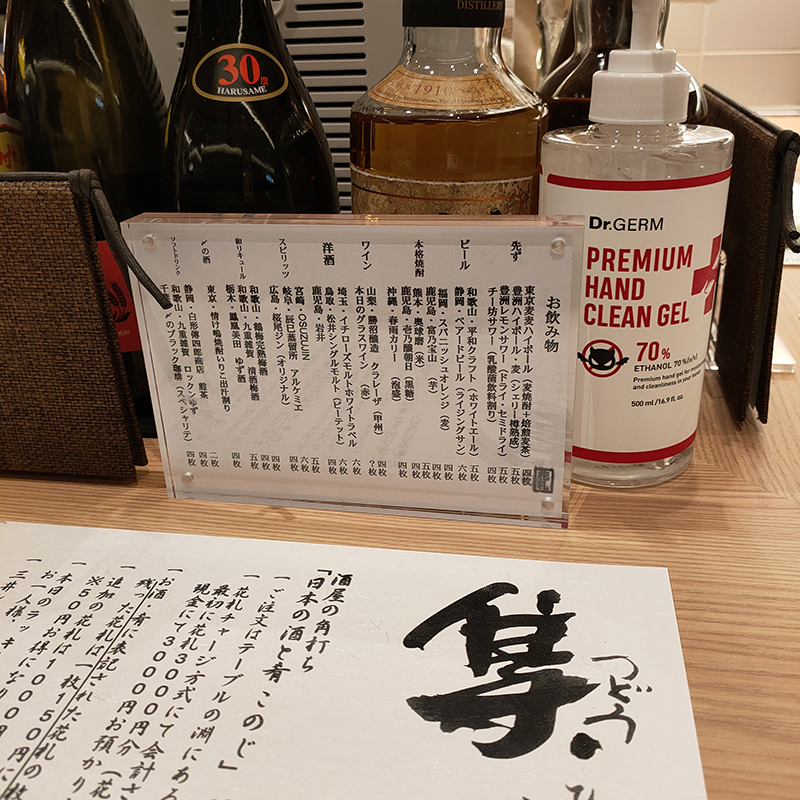 30度
HARUSAME
DISTILLERY
1910
Dr.GERM
PREMIUM
HAND
CLEAN GEL
70%
ETHANOL 70%(v/v)
Premium hand gel for
and cleanliness in your
500 ml/16.9 fl. oz.
お飲み物
先ず
東京麦麦ハイボール(麦焼酎+焙煎麦茶) 四枚
豊洲ハイボール・麦(シェリー樽熟成) 五枚
豊洲レモンサワー(ドライ・セミドライ) 五枚
チー坊サワー(乳酸菌飲料割り) 四枚
ビール
和歌山・平和クラフト(ホワイトエール) 五枚
静岡・ベアードビール(ライジングサン) 六枚
本格焼酎
福岡・スパニッシュオレンジ(麦) 四枚
鹿児島・富乃宝山(芋) 四枚
熊本・奥球磨(米) 五枚
鹿児島・壱乃醸朝日(黒糖) 四枚
沖縄・春雨カリー(泡盛) 四枚
ワイン
山梨・勝沼醸造 クラレーザ(甲州) 四枚
本日のグラスワイン(赤) ?枚
洋酒
埼玉・イチローズモルトホワイトラベル 六枚
鳥取・松井シングルモルト(ピーテット) 六枚
鹿児島・岩井 五枚
スピリッツ
宮崎・OSUZU GIN 六枚
岐阜・辰巳蒸留所 アルケミエ 六枚
広島・桜尾ジン(オリジナル) 四枚
和リキュール
和歌山・鶴梅完熟梅酒 四枚
和歌山・九重雑賀 清酒梅酒 五枚
栃木・鳳凰美田 ゆず酒 四枚
〆の酒
東京・情け嶋焼酎いりこ出汁割り 二枚
ソフトドリンク
静岡・白形傳四郎商店 煎茶 四枚
和歌山・九重雑賀 ロックンゆず 四枚
千葉・〆のブラック珈琲(スペシャリテ) 四枚
集
つどう
ひ
酒屋の角打ち
「日本の酒と肴 このじ」
一 ご注文はテーブルの淵にある
花札チャージ方式にて会計さ
最初に花札30枚
現金にて3000円分
一 お酒・肴に表記された花札の枚
残った花札は
お預かり
一 追加の花札は一枚150円
※50円お得になり
一 本日の
お一人様